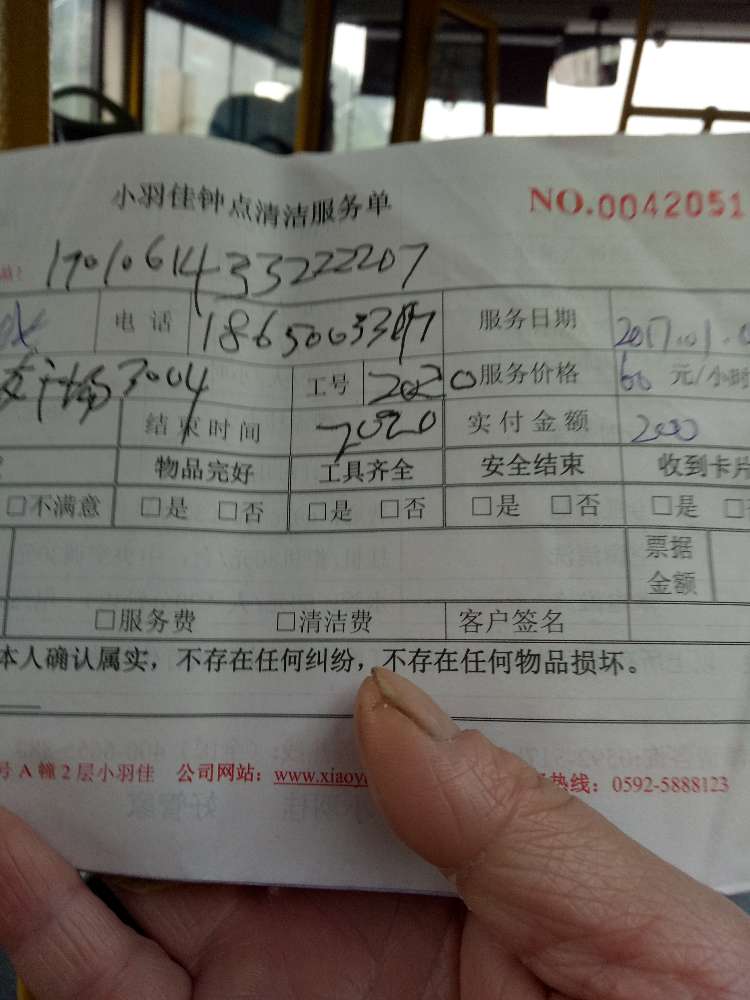 小羽佳钟点清洁服务单 NO.0042051
1701061433222207
电话 服务日期
3004 工号 服务价格 60 元/小时
结束时间 2020 实付金额
物品完好 工具齐全 安全结束 收到卡片
□不满意 □是 □否 □是 □否 □是 □否 □是
票据
金额
□服务费 □清洁费 客户签名
本人确认属实，不存在任何纠纷，不存在任何物品损坏。
号A幢2层小羽佳 公司网站：www.xiaoy 热线：0592-5888123